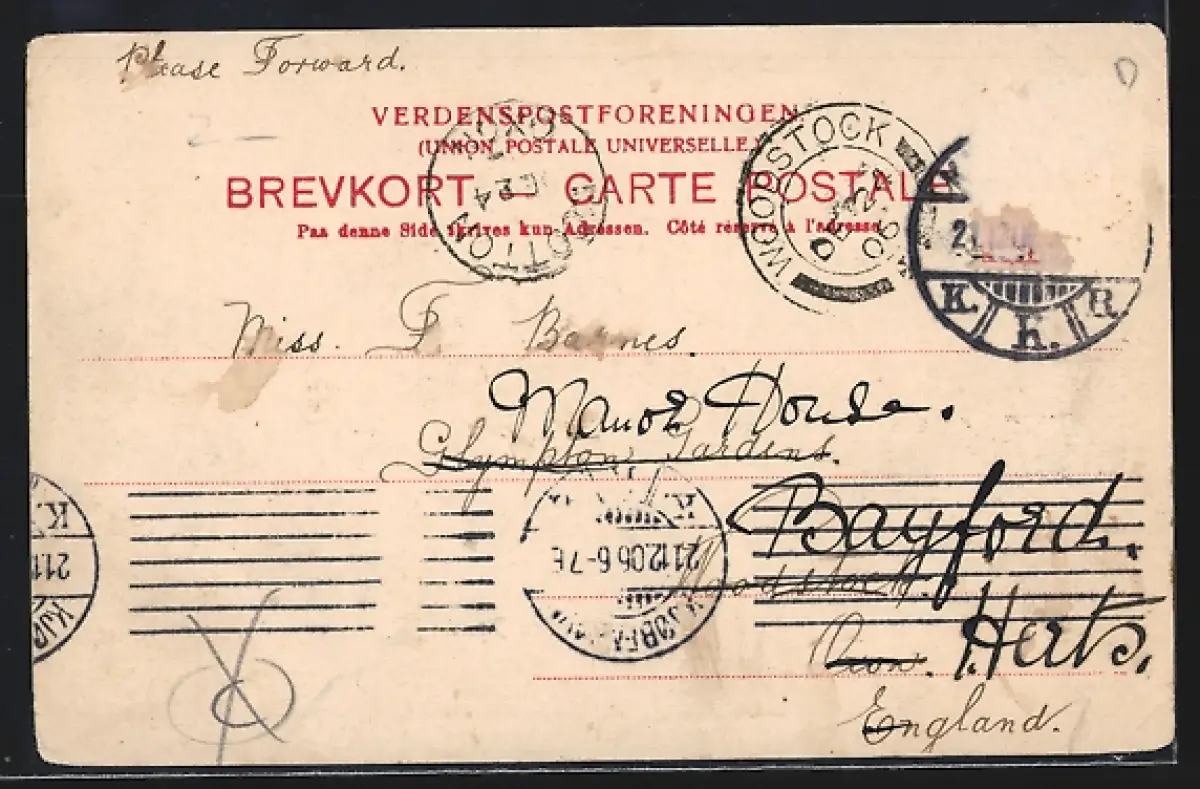 Please Forward.
VERDENSPOSTFORENINGEN
(UNION POSTALE UNIVERSELLE.)
BREVKORT — CARTE POSTALE
Paa denne Side skrives kun Adressen. Côté réservé à l'adresse
WOODSTOCK
DE 24
K. K. R.
Miss. F. Barnes.
Manor House.
Glympton Gardens.
Bayford.
Woodstock.
K.
21.12.06 6-7 E
Oxon. Herts.
England.